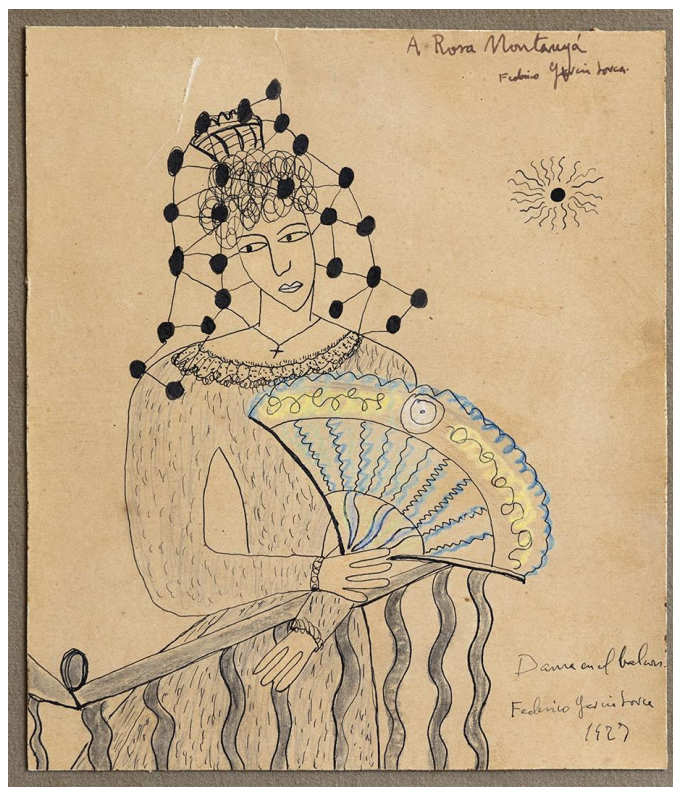 A Rosa Montanyá
Federico García Lorca.
Dama en el balcón.
Federico García Lorca
1927